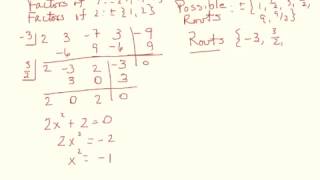 Factors of 9: ± {1, 3, 9}
Factors of 2: ± {1, 2}
Possible: ± {1, 1/2, 3, 3/2,
Roots 9, 9/2}
-3 | 2 3 -7 3 -9
-6 9 -6 9
3/2 | 2 -3 2 -3 0
3 0 3
2 0 2 0
Roots {-3, 3/2,
2x² + 2 = 0
2x² = -2
x² = -1